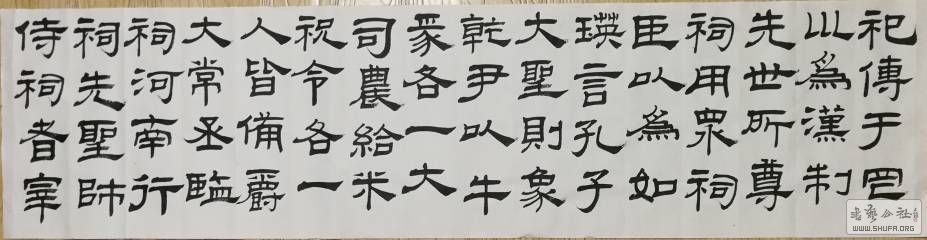 祀傳于罔
以爲漢制
先世所尊
祠用眾祠
臣以爲如
瑛言孔子
大聖則象
乾尹以牛
各一大
司農給米
祝令各一
人皆備爵
大常丞監
祠河南行
祠先聖師
侍祠者宰
书艺公社
WWW.SHUFA.ORG